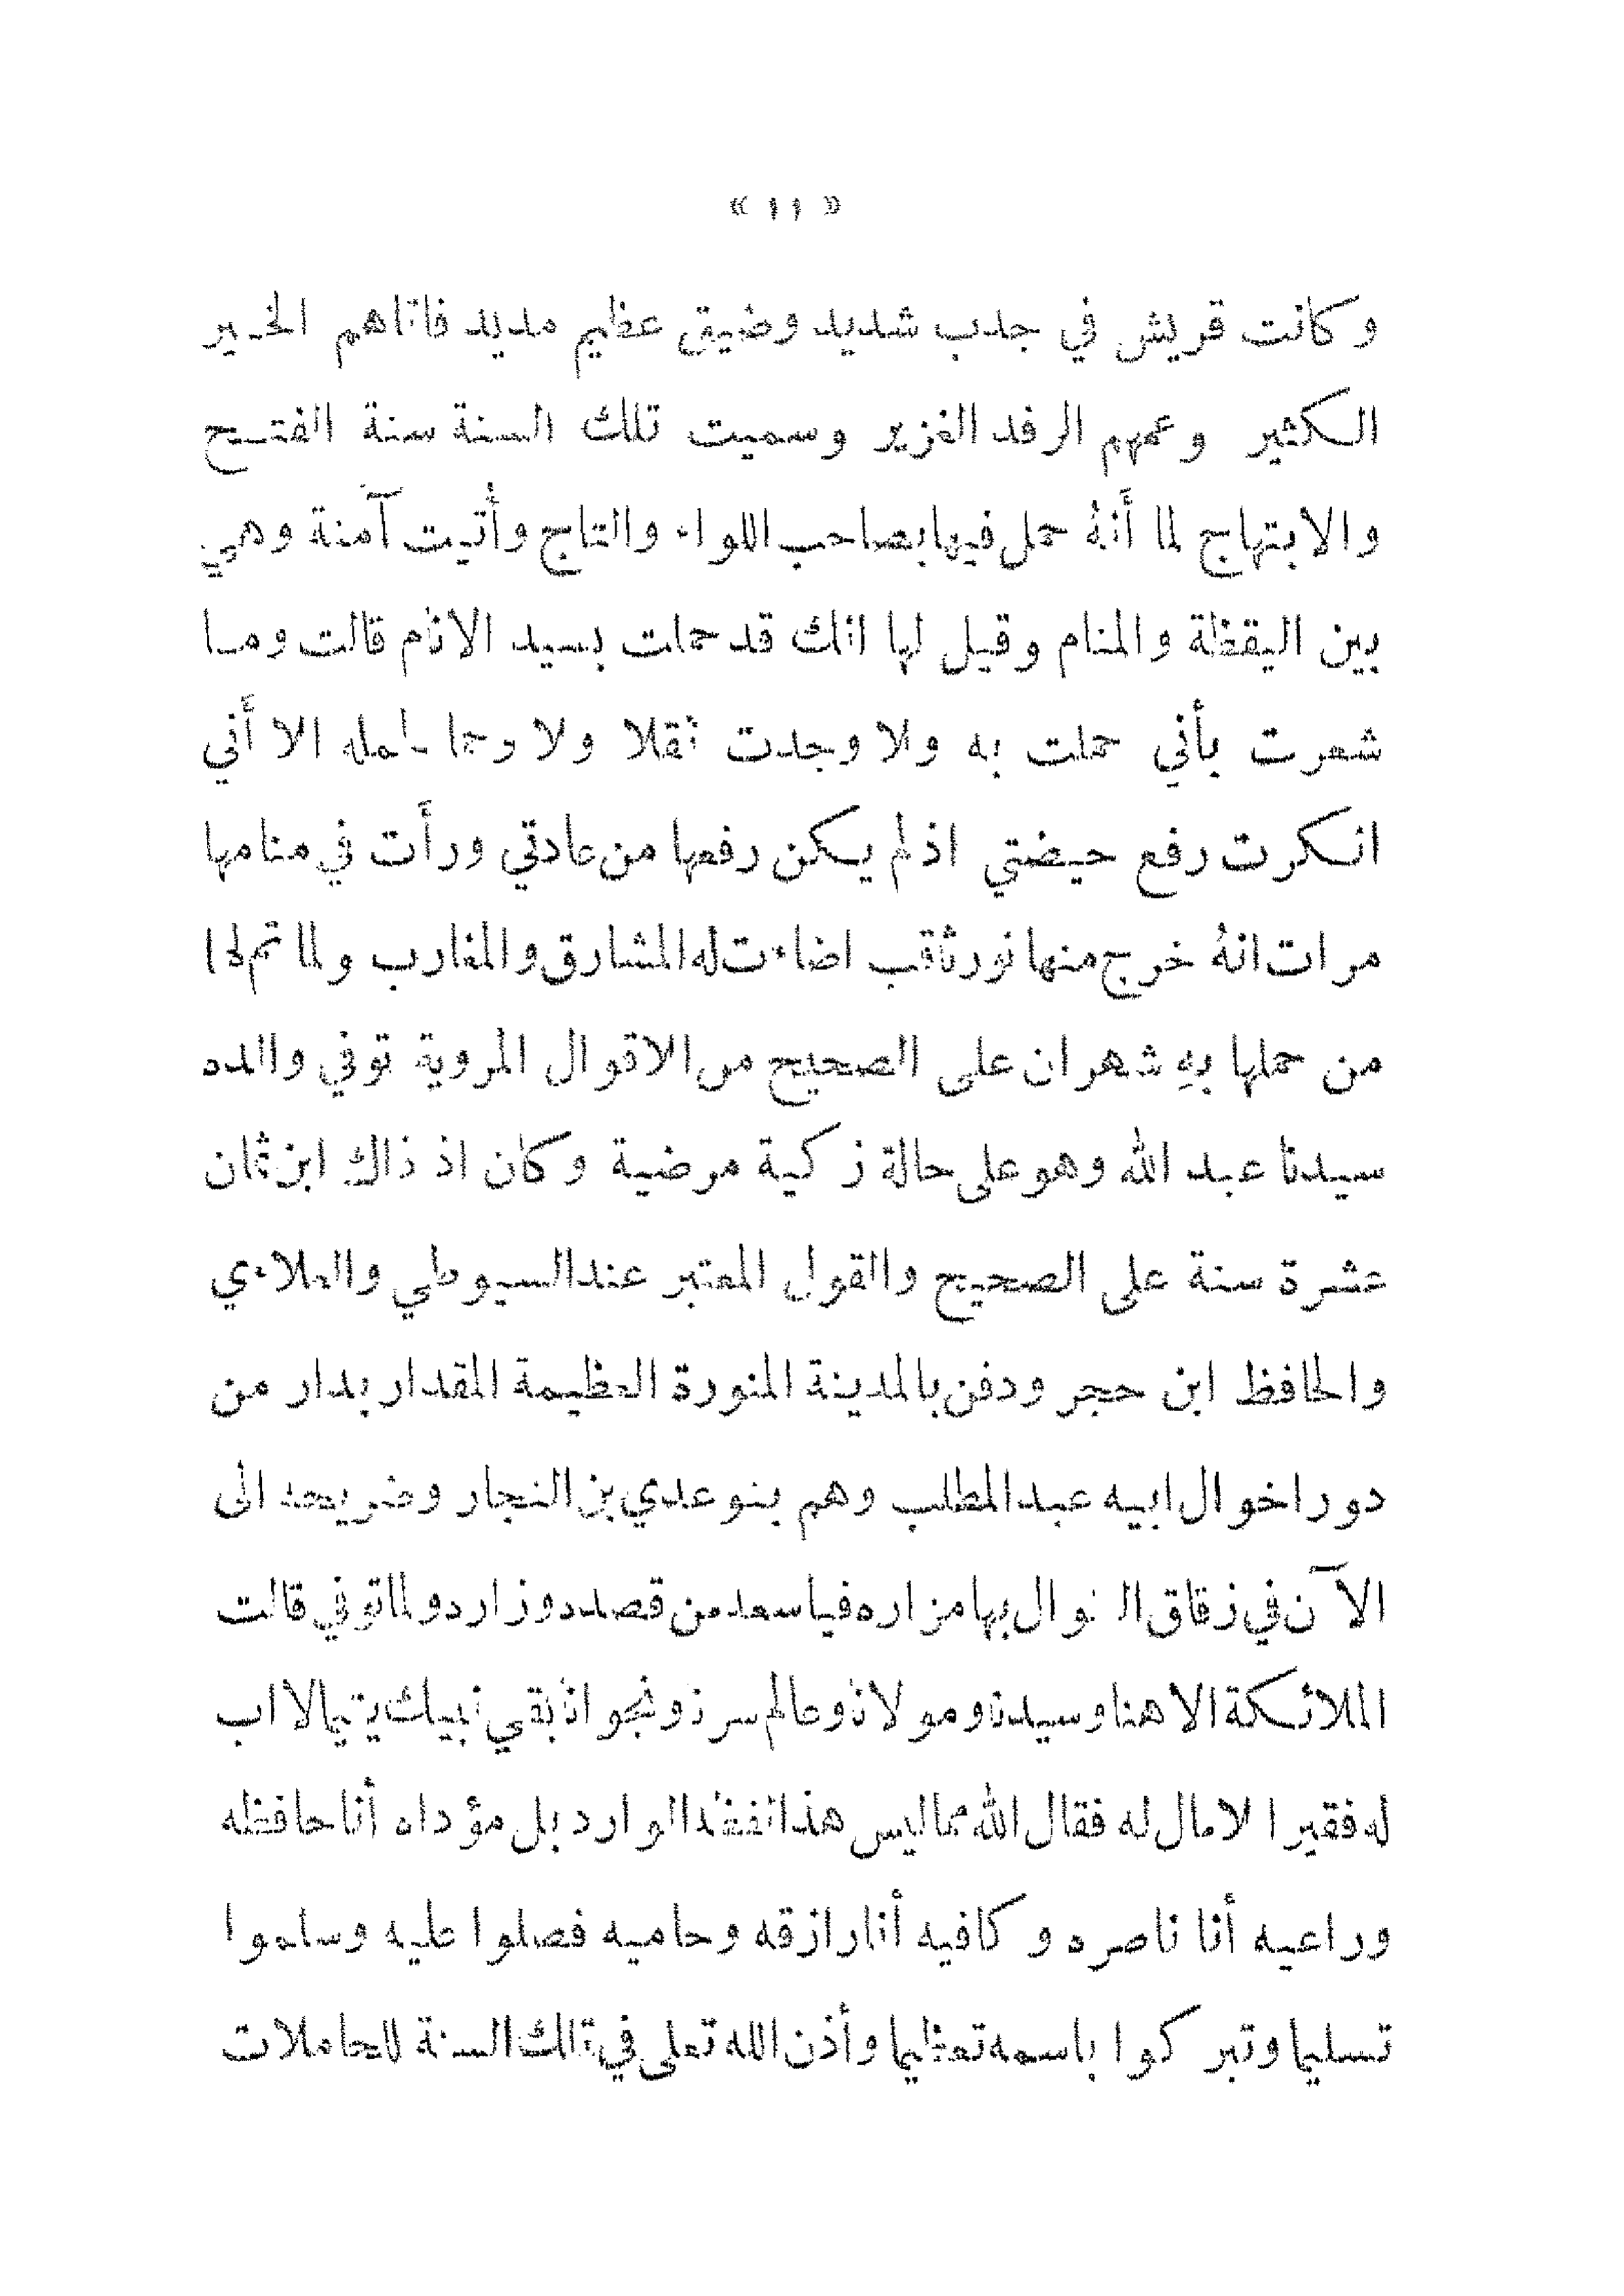 « ١١ »
وكانت قريش في جدب شديد وضيق عظيم مديد فاتاهم الخير
الكثير وعمهم الرفد الغزير وسميت تلك السنة سنة الفتح
والابتهاج لما أنهُ حمل فيها بصاحب اللواء والتاج وأُتيت آمنة وهي
بين اليقظة والمنام وقيل لها انك قد حملت بسيد الانام قالت وما
شعرت بأني حملت به ولا وجدت ثقلا ولا وحما لحمله الا أني
انكرت رفع حيضتي اذ لم يكن رفعها من عادتي ورأت في منامها
مرات انهُ خرج منها نور ثاقب اضاءت له المشارق والمغارب ولما تم لها
من حملها بهِ شهران على الصحيح من الاقوال المروية توفي والده
سيدنا عبد الله وهو على حالة زكية مرضية وكان اذ ذاك ابن ثمان
عشرة سنة على الصحيح والقول المعتبر عند السيوطي والعلاءي
والحافظ ابن حجر ودفن بالمدينة المنورة العظيمة المقدار بدار من
دور اخوال ابيه عبد المطلب وهم بنو عدي بن النجار وضريحه الى
الآن في زقاق النوال بها مزاره فيا سعد من قصده وزاره ولما توفي قالت
الملائكة الاهنا وسيدنا ومولانا وعالم سرنا ونجوانا بقي نبيك يتيما لا اب
له فقيرا لا مال له فقال الله مما ليس هذا لفظه الوارد بل مؤداه أنا حافظه
وراعيه أنا ناصره وكافيه أنا رازقه وحاميه فصلوا عليه وسلموا
تسليما وتبركوا باسمه تعظيما وأذن الله تعلى في تلك السنة للحاملات